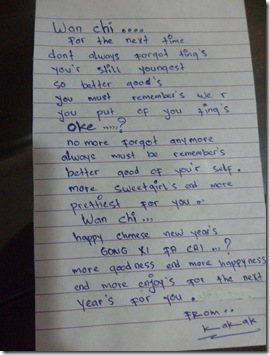 Wan chi ....
For the next time
dont always forgot ting's
you'r still youngest
so better good's
you must remember's we r
you put of you ting's
oke .....?
no more forgot anymore
always must be remember's
better good of you'r self.
more sweetgirl's end more
prettiest for you ..
Wan chi ...
happy chinese new year's
GONG XI FA CAI ...?
more goodness end more happyness
end more enjoy's for the next
year's for you .
From..
Kakak